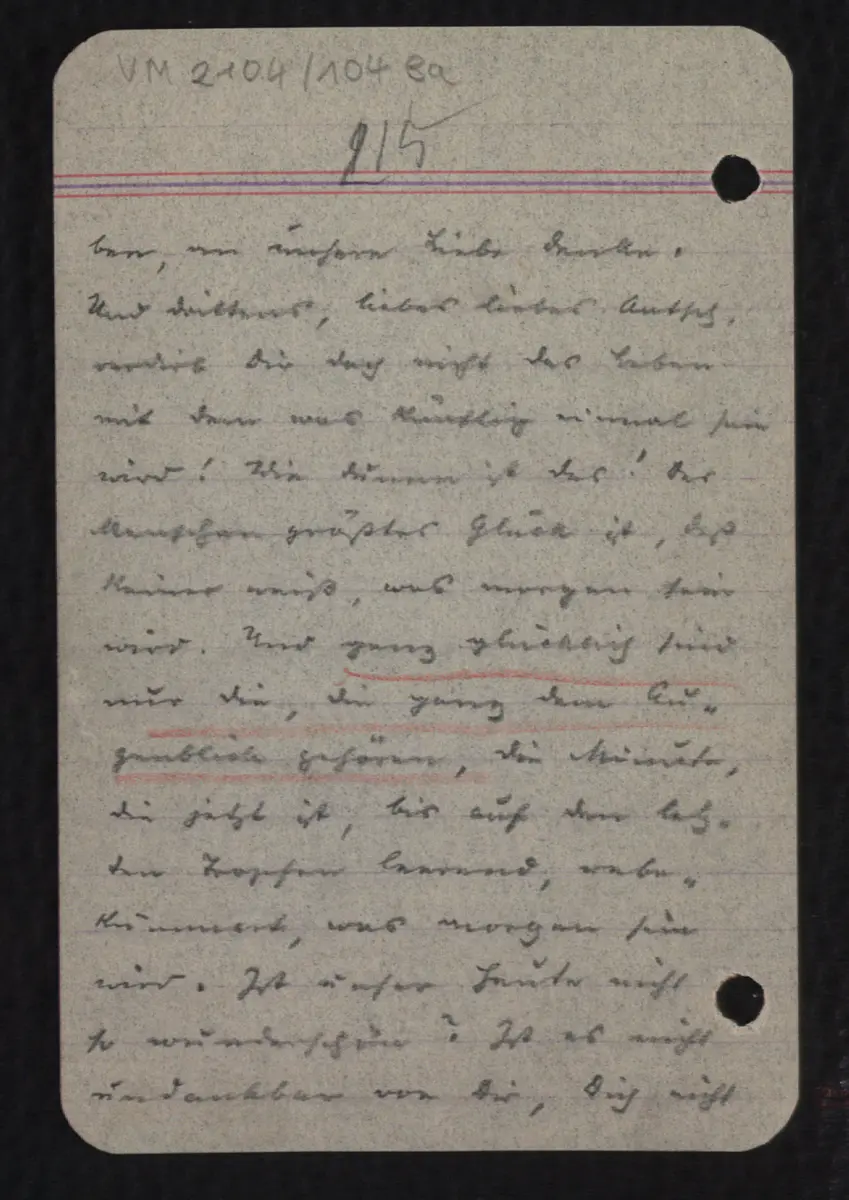 VM 2104/104 8a
215
ben, an unsere Liebe denke.
Und drittens, liebes liebes Antsch,
verdirb Dir doch nicht das Leben
mit dem was künftig einmal sein
wird! Wie dumm ist das! Des
Menschen größtes Glück ist, daß
keiner weiß, was morgen sein
wird. Und ganz glücklich sind
nur die, die ganz dem Au-
genblick gehören, die Minute,
die jetzt ist, bis auf den letz-
ten Tropfen leerend, unbe-
kümmert, was morgen sein
wird. Ist unser Heute nicht
so wunderschön? Ist es nicht
undankbar von Dir, Dich nicht